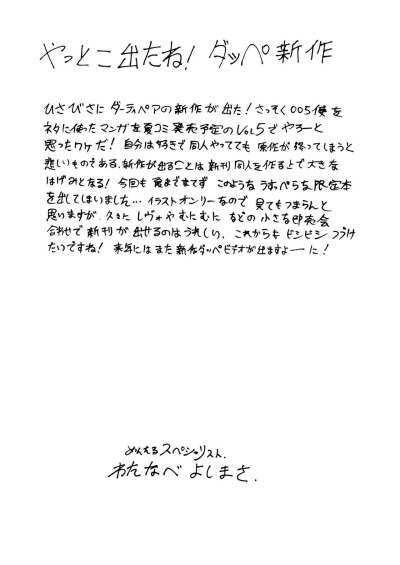 やっとこ出たね! ダッペ新作
ひさびさに ダーティペアの新作が出た! さっそく005便を
ネタに使ったマンガを夏コミ発売予定のVOL5でやろーと
思ったワケだ! 自分は好きで同人やってても 原作が終ってしまうと
悲いものである。新作が出ることは新刊同人を作る上で大きな
はげみとなる! 今回も 夏までまてず このようなうすっぺらな限定本
を出してしまいました… イラストオンリーなので 見てもつまらんと
思いますが、久々に レヴォや むにむに などの小さな即売会
合わせで 新刊が出せるのはうれしい。これからも ビシビシ つづけ
たいですね! 来年にはまた新作ダッペビデオが出ますよーに!
スペシャリスト.
わたなべ よしまさ.